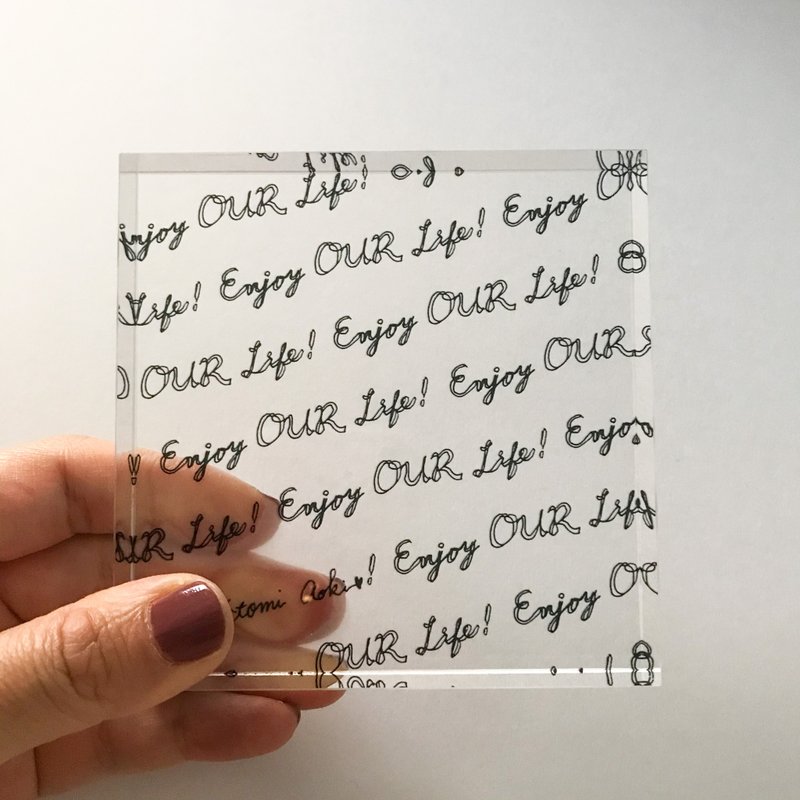 Enjoy OUR Life!
Life! Enjoy OUR Life! Enjoy O
OUR Life! Enjoy OUR Life!
Enjoy OUR Life! Enjoy OUR
UR Life! Enjoy OUR Life! Enjo
tomi Aoki♥! Enjoy OUR Life
OUR Life! Enjoy O